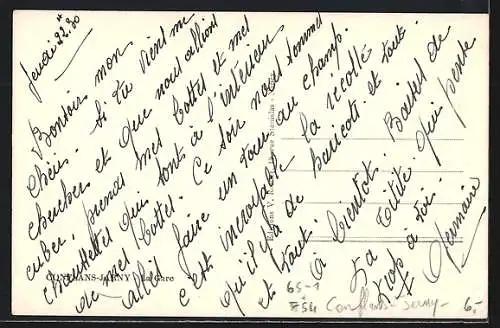 Jeudi 22.30
Bonsoir mon
chéri. Si tu viens me
chercher et que nous allions
cuber, prends mes bottes et mes
chaussettes qui sont à l'intérieur
de mes bottes. Ce soir nous sommes
allés faire un tour au champ.
c'est incroyable la récolte
qu'il y a de haricots et tout
et tout.
à bientôt. Baisers de
ta Titite qui pense
trop à toi.
Germaine
CONFLANS-JARNY - La Gare
65-1
Conflans-Jarny-
6.-